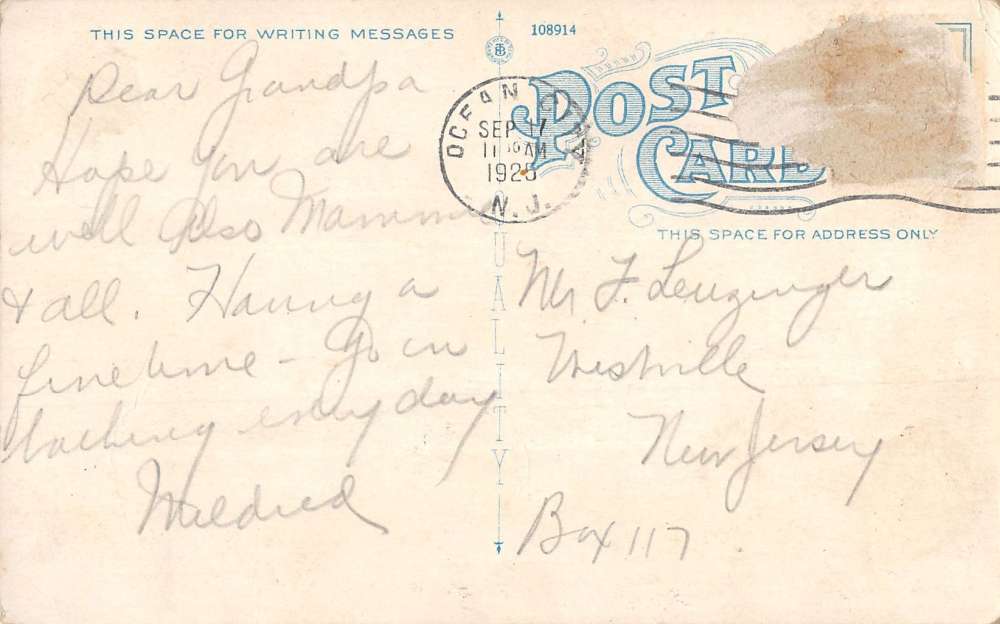 THIS SPACE FOR WRITING MESSAGES
108914
POST CARD
THIS SPACE FOR ADDRESS ONLY
QUALITY
OCEAN CITY
SEP 17
11 30 AM
1925
N.J.
Dear Grandpa
Hope you are
well Also Mamma
& all. Having a
fine time - Go in
bathing every day
Mildred
Mr F. Leuzinger
Westville
New Jersey
Box 117